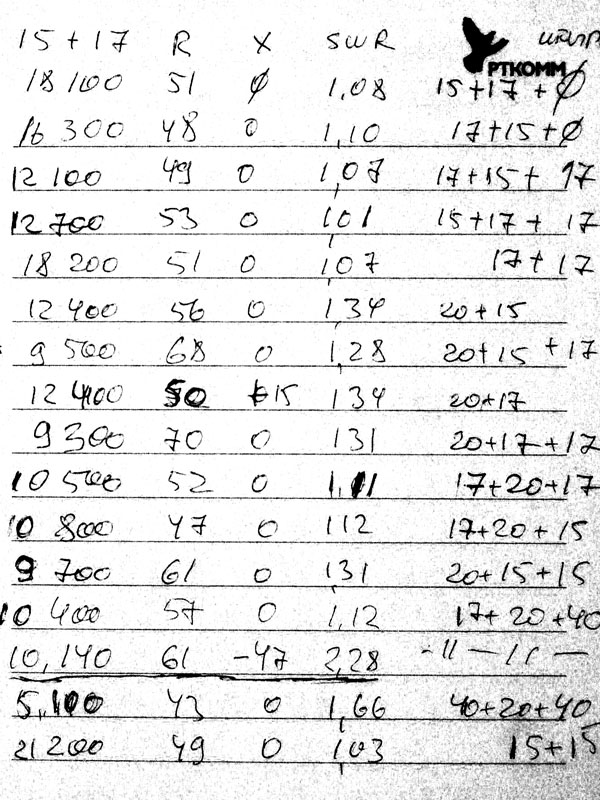 15+17 R X SWR
РТКОММ
18 100 51 ϕ 1,08 15+17+ϕ
16 300 48 0 1,10 17+15+ϕ
12 100 49 0 1,07 17+15+ 17
12 700 53 0 1,01 15+17+ 17
18 200 51 0 1,07 17+17
12 400 56 0 1,34 20+15
9 500 68 0 1,28 20+15+17
12 400 50 15 1,34 20+17
9 300 70 0 131 20+17+17
10 500 52 0 1,11 17+20+17
10 800 47 0 112 17+20+15
9 700 61 0 1,31 20+15+15
10 400 57 0 1,12 17+20+40
10,140 61 -47 2,28 -11-11-
5,100 43 0 1,66 40+20+40
21 200 49 0 1,03 15+15